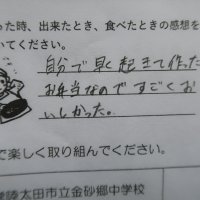 った時、出来たとき、食べたときの感想を
いてください。
自分で早く起きて作った
お弁当なのですごくお
いしかった。
で楽しく取り組んでください。
陸太田市立金砂郷中学校